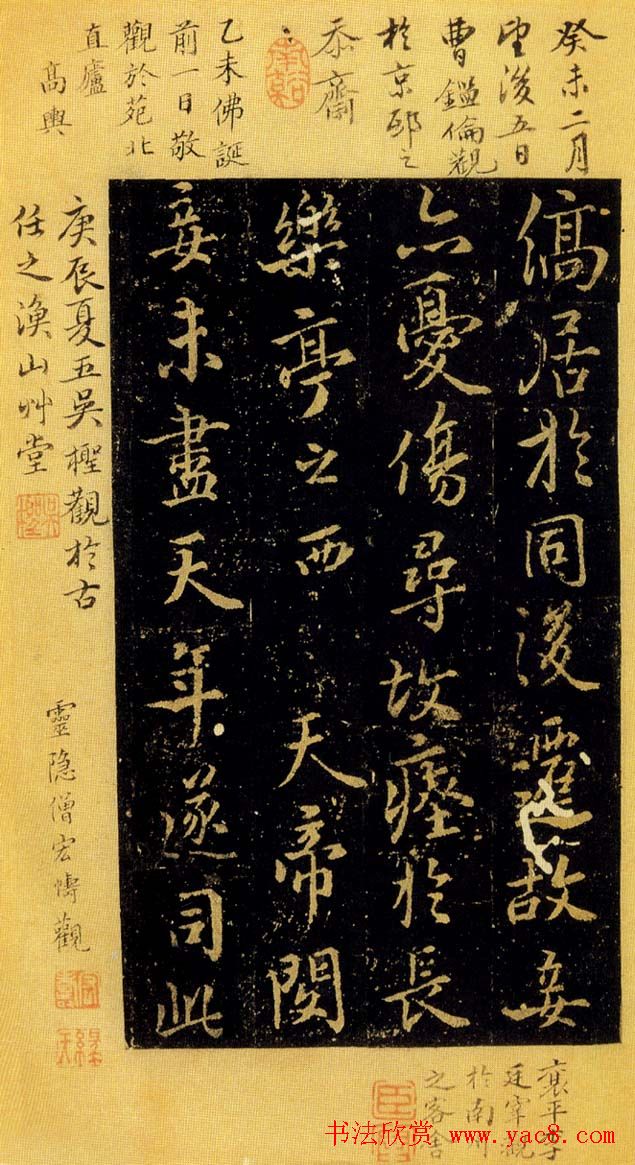 癸未二月
望後五日
曹鑑倫觀
於京邸之
忝齋
乙未佛誕
前一日敬
觀於苑北
直廬
高輿
縞居於同後遷故妾
亦憂傷尋故瘞於長
樂亭之西 天帝閔
妾未盡天年遂司此
庚辰夏五吳檉觀於古
任之漁山艸堂
靈隱僧宏
觀
平李
廷宰觀
於南州
之客舍
书法欣赏 www.yac8.com